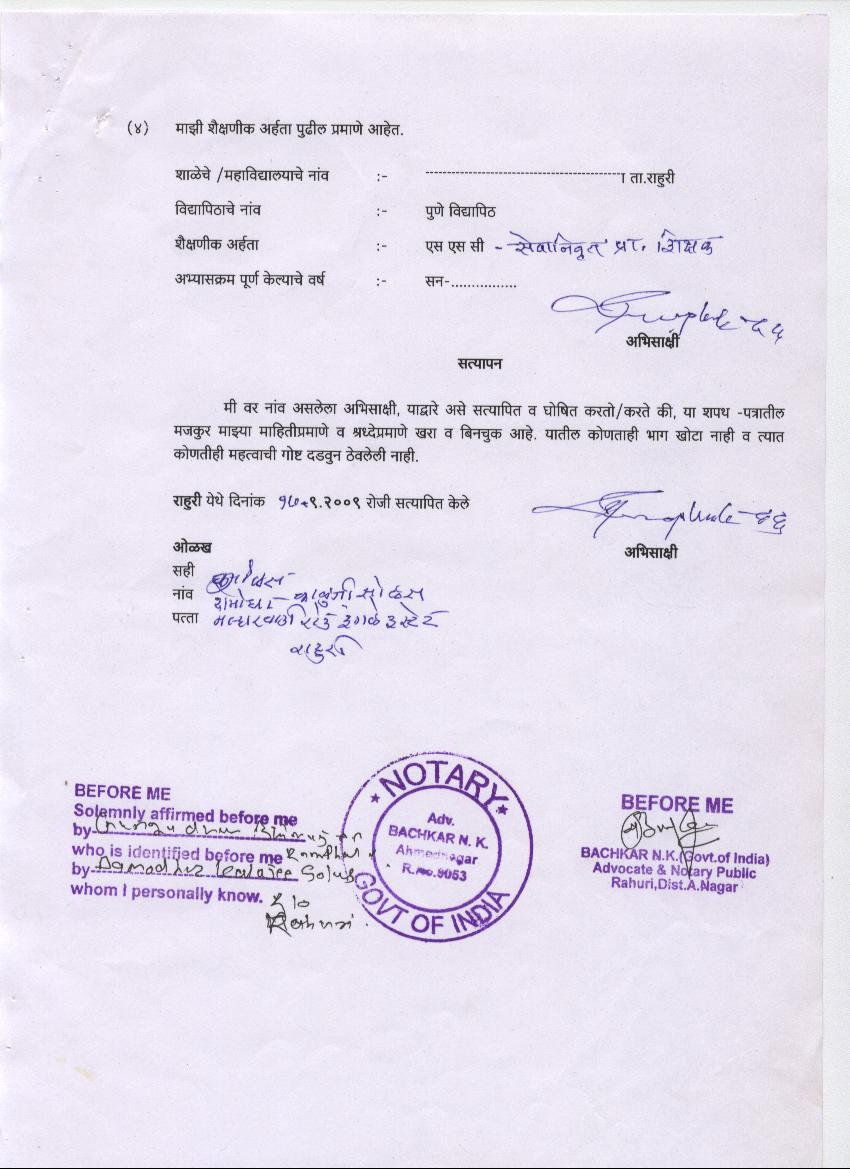 (४) माझी शैक्षणीक अर्हता पुढील प्रमाणे आहेत.
शाळेचे /महाविद्यालयाचे नांव :- ---------------------------------------------। ता.राहुरी
विद्यापिठाचे नांव :- पुणे विद्यापिठ
शैक्षणीक अर्हता :- एस एस सी - सेवानिवृत्त प्रा. शिक्षक
अभ्यासक्रम पूर्ण केल्याचे वर्ष :- सन-................
अभिसाक्षी
सत्यापन
मी वर नांव असलेला अभिसाक्षी, याद्वारे असे सत्यापित व घोषित करतो/करते की, या शपथ -पत्रातील
मजकुर माझ्या माहितीप्रमाणे व श्रध्देप्रमाणे खरा व बिनचुक आहे. यातील कोणताही भाग खोटा नाही व त्यात
कोणतीही महत्वाची गोष्ट दडवुन ठेवलेली नाही.
राहुरी येथे दिनांक १७.९.२००९ रोजी सत्यापित केले
अभिसाक्षी
ओळख
सही
नांव
पत्ता मल्हारवाडी रोड इंगळे इस्टेट
राहुरी
BEFORE ME
Solemnly affirmed before me
by
who is identified before me
by Damodhar
whom I personally know.
R/o
Rahuri.
NOTARY
Adv.
BACHKAR N. K.
Ahmednagar
R.No.9053
GOVT OF INDIA
BEFORE ME
BACHKAR N.K.(Govt.of India)
Advocate & Notary Public
Rahuri,Dist.A.Nagar